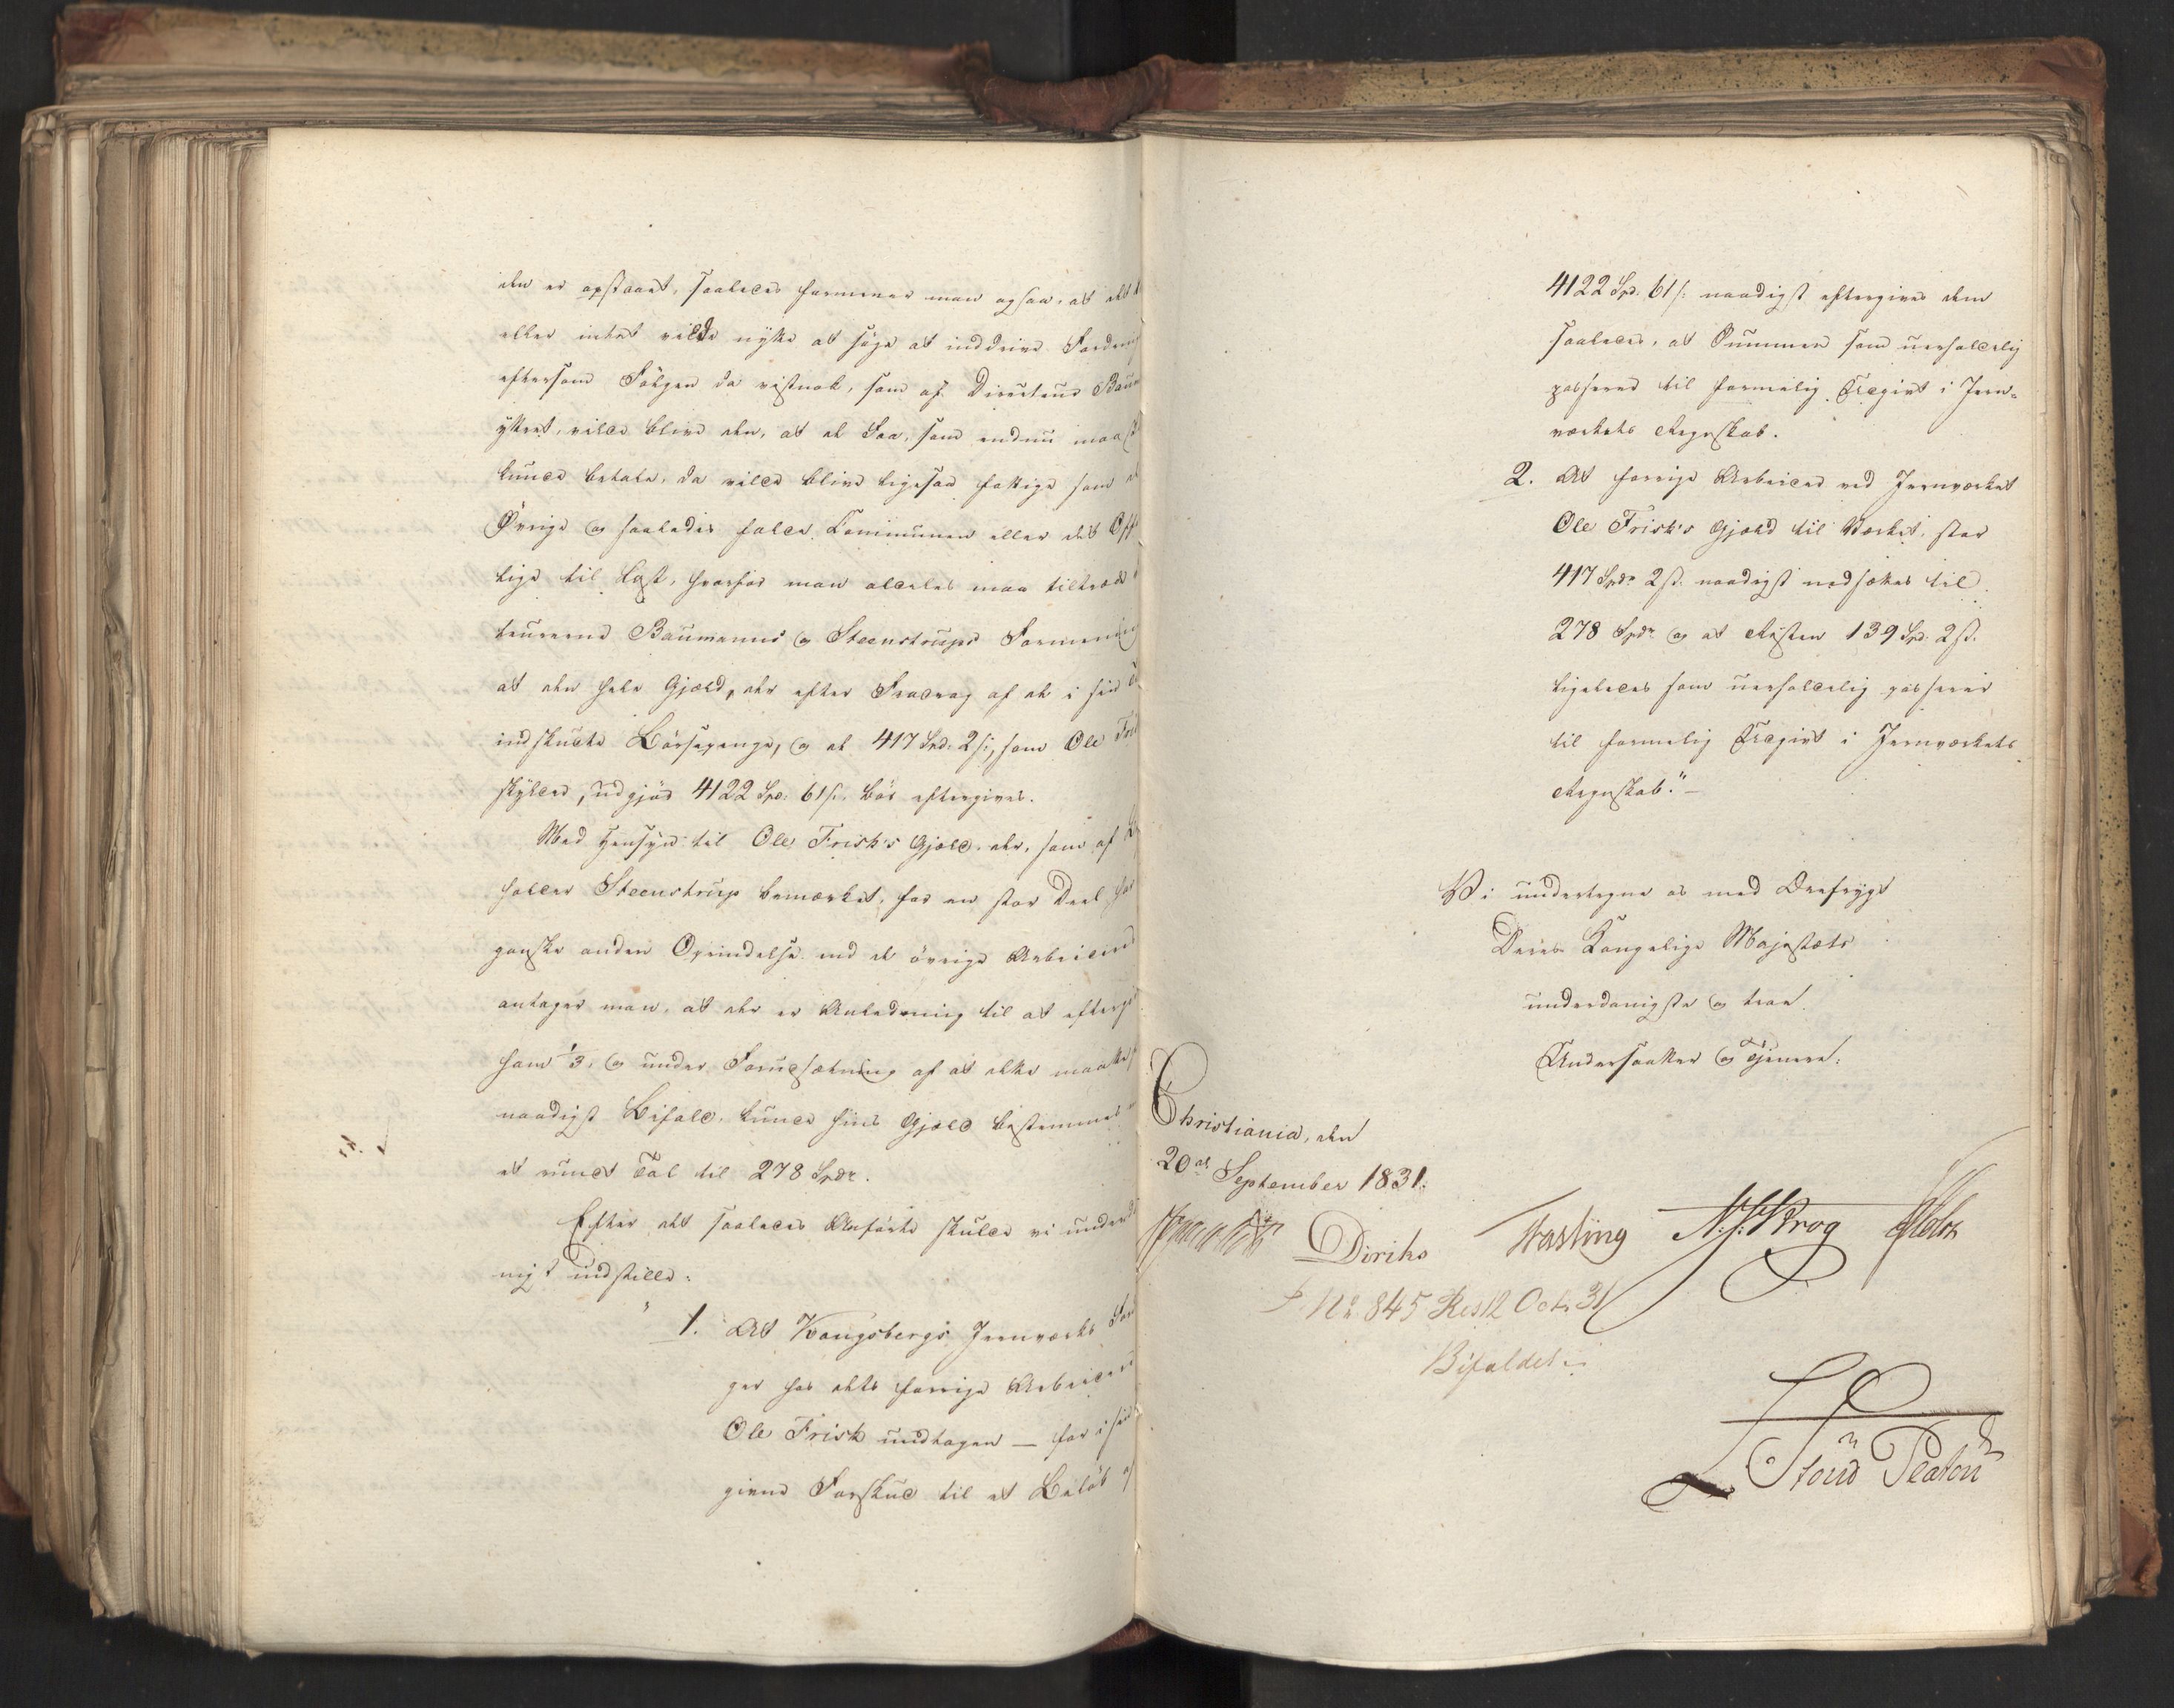 den er opstaaet, saaledes formener man ogsaa, at det
eller intet vilde nytte at søge at inddrive Fordring
eftersom Følgen da vistnok, som af Directeur Baum
yttret, vilde blive den, at de Faa, som endnu maas
kunde betale, da vilde blive ligesaa fattige som d
Øvrige og saaledes falde Communen eller det Off
lige til Last, hvorfor man aldeles maa tiltræde
teurerne Baumanns og Steenstrups Formening
at den hele Gjæld, der efter Fradrag af de i sin
indskudte Børsepenge, og de 417 Spd. 2 s:, som Ole Fris
skylder, udgjør 4122 Spd. 61 s. bør eftergives.
Med Hensyn til Ole Frisk's Gjæld, der, som af
holder Steenstrup bemærket, for en stor Deel har
ganske anden Oprindelse end de øvrige Arbeideres
antager man, at der er Anledning til at eftergi
ham 1/3, og under Forudsætning af at dette maatte
naadigst Bifald, kunde hans Gjæld bestemmes
et rundt Tal til 278 Spdr.
Efter det saaledes Anførte skulde vi underd
nigst indstille:
" 1. At Kongsbergs Jernværks For
ger hos dets forrige Arbeidere
Ole Frisk undtagen — for i sin
givne Forskud til et Beløb af
4122 Spd. 61 s: naadigst eftergives dem
saaledes, at Summen som uerholdelig
passerer til formelig Udgivt i Jern-
værkets Regnskab.
2. At forrige Arbeider ved Jernværket
Ole Frisk's Gjæld til Værket, stor
417 Spdr. 2 s. naadigst nedsættes til
278 Spdr. og at Resten 139 Spd. 2 s.
ligeledes som uerholdelig passerer
til formelig Udgivt i Jernværkets
Regnskab." —
Vi undertegne os med Ærefrygt
Deres Kongelige Majestæts
underdanigste og troe
Undersaatter og Tjenere.
Christiania, den
20de September 1831.
Diriks Fasting N. J. Krog Holst
No. 845 Res 12 Octr 31
Bifaldet
Stoud Platou